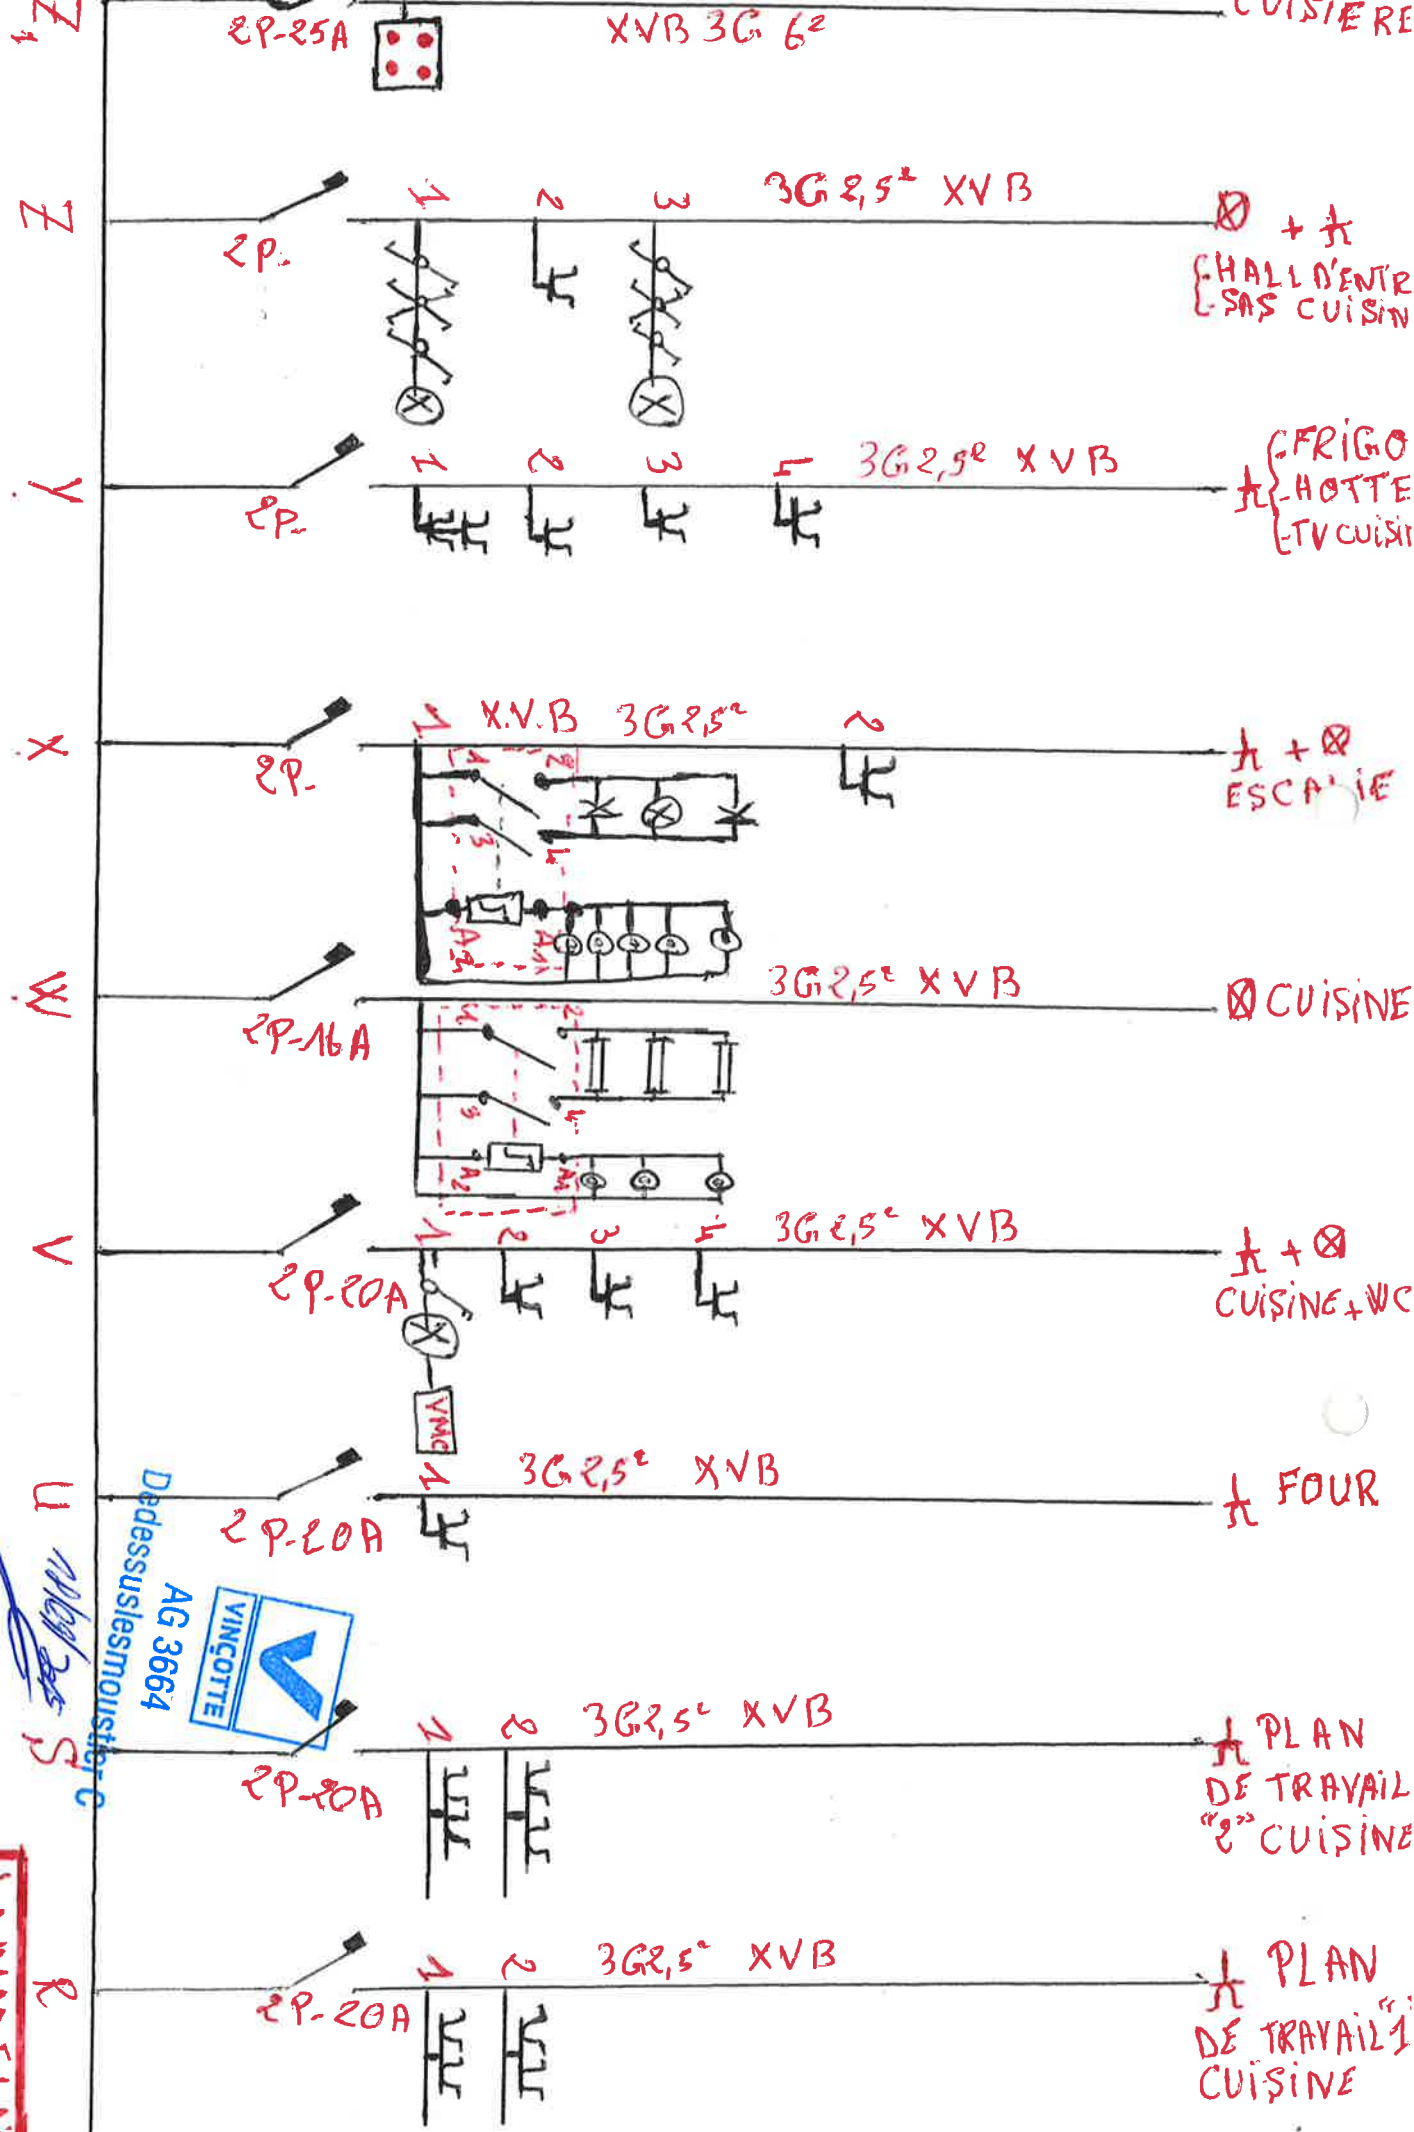 Z1
2P-25A
XVB 3G 6²
CUISIERE
Z
2P-
1
2
3
3G 2,5² XVB
+
- HALL D'ENTR
- SAS CUISIN
Y
2P-
1
2
3
4
3G 2,5² XVB
- FRIGO
- HOTTE
- TV CUISIN
X
2P-
1
X.V.B 3G 2,5²
2
1
2
3
4
A2
A1
+
W
2P-16A
3G 2,5² XVB
CUISINE
2
3
4
A2
A1
V
2P-20A
1
2
3
4
3G 2,5² XVB
+
CUISINE + WC
VMC
U
2P-20A
1
3G 2,5² XVB
FOUR
VINÇOTTE
AG 3664
Dedessuslesmoustier C
S
2P-20A
1
2
3G 2,5² XVB
PLAN
DE TRAVAIL
"2" CUISINE
R
2P-20A
1
2
3G 2,5² XVB
PLAN
DE TRAVAIL "1"
CUISINE